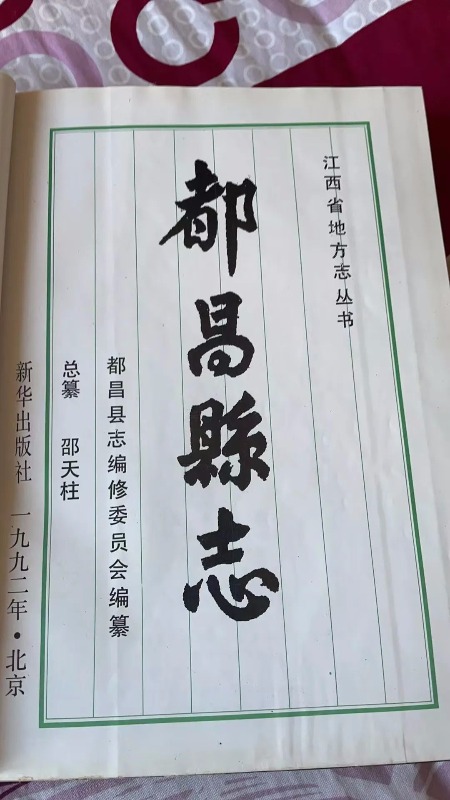 江西省地方志丛书
都昌縣志
都昌县志编修委员会编纂
总纂 邵天柱
新华出版社 一九九二年·北京